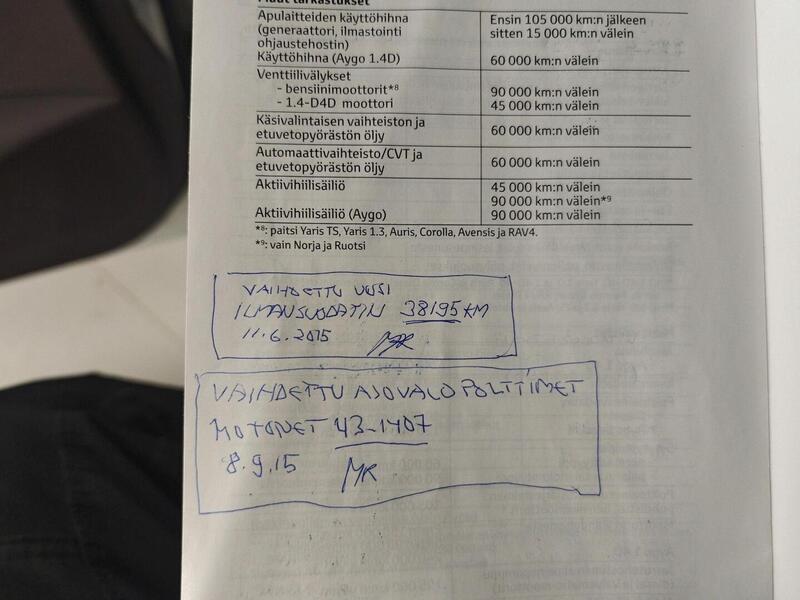 Muut tarkastukset
Apulaitteiden käyttöhihna
(generaattori, ilmastointi
ohjaustehostin)
Ensin 105 000 km:n jälkeen
sitten 15 000 km:n välein
Käyttöhihna (Aygo 1.4D)
60 000 km:n välein
Venttiilivälykset
- bensiinimoottorit*8
90 000 km:n välein
- 1.4-D4D moottori
45 000 km:n välein
Käsivalintaisen vaihteiston ja
etuvetopyörästön öljy
60 000 km:n välein
Automaattivaihteisto/CVT ja
etuvetopyörästön öljy
60 000 km:n välein
Aktiivihiilisäiliö
45 000 km:n välein
90 000 km:n välein*9
Aktiivihiilisäiliö (Aygo)
90 000 km:n välein
*8: paitsi Yaris TS, Yaris 1.3, Auris, Corolla, Avensis ja RAV4.
*9: vain Norja ja Ruotsi
VAIHDETTU UUSI
ILMANSUODATIN 38195 KM
11.6.2015 MR
VAIHDETTU AJOVALOPOLTTIMET
MOTONET 43-1407
8.9.15 MR